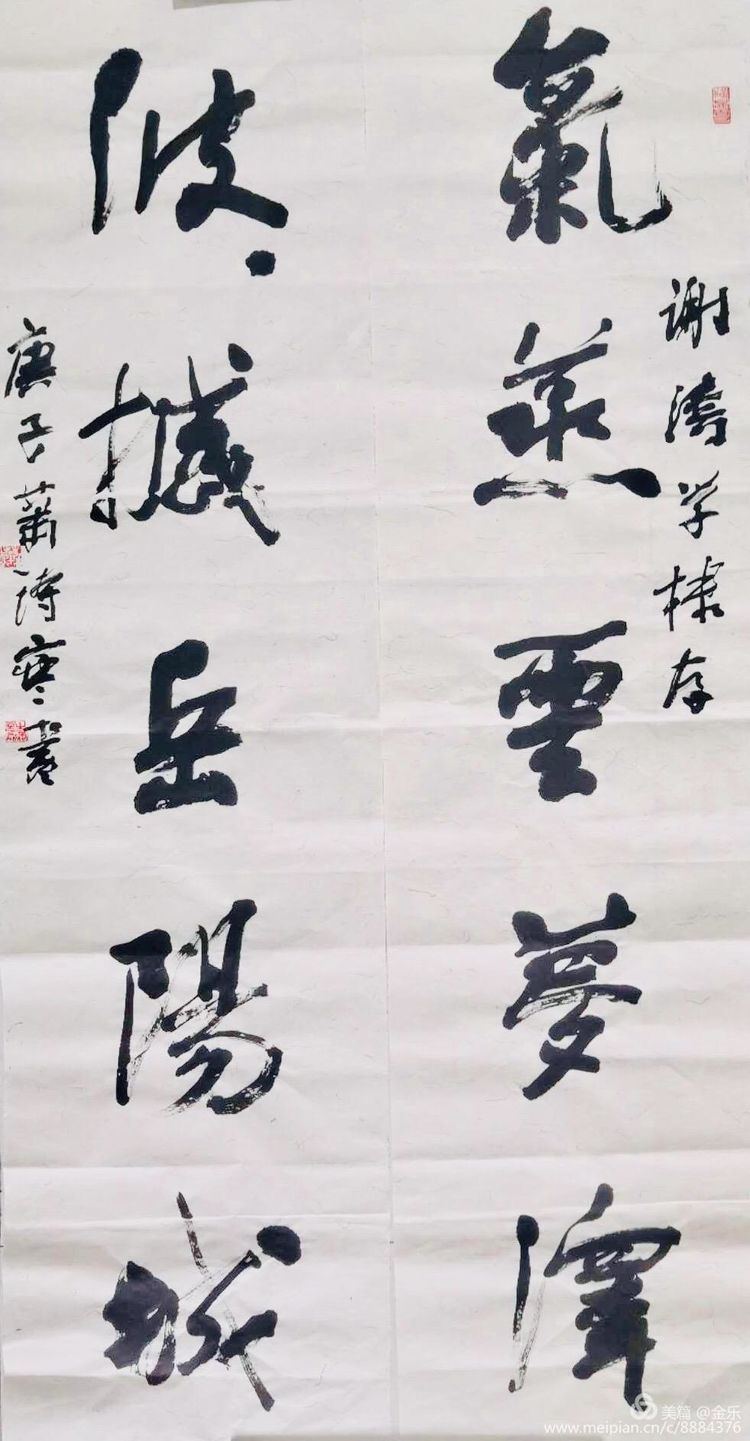 氣蒸雲夢澤
谢濤学棣存
波撼岳陽城
庚子萧诗寒书
美篇 @金乐
www.meipian.cn/c/8884376